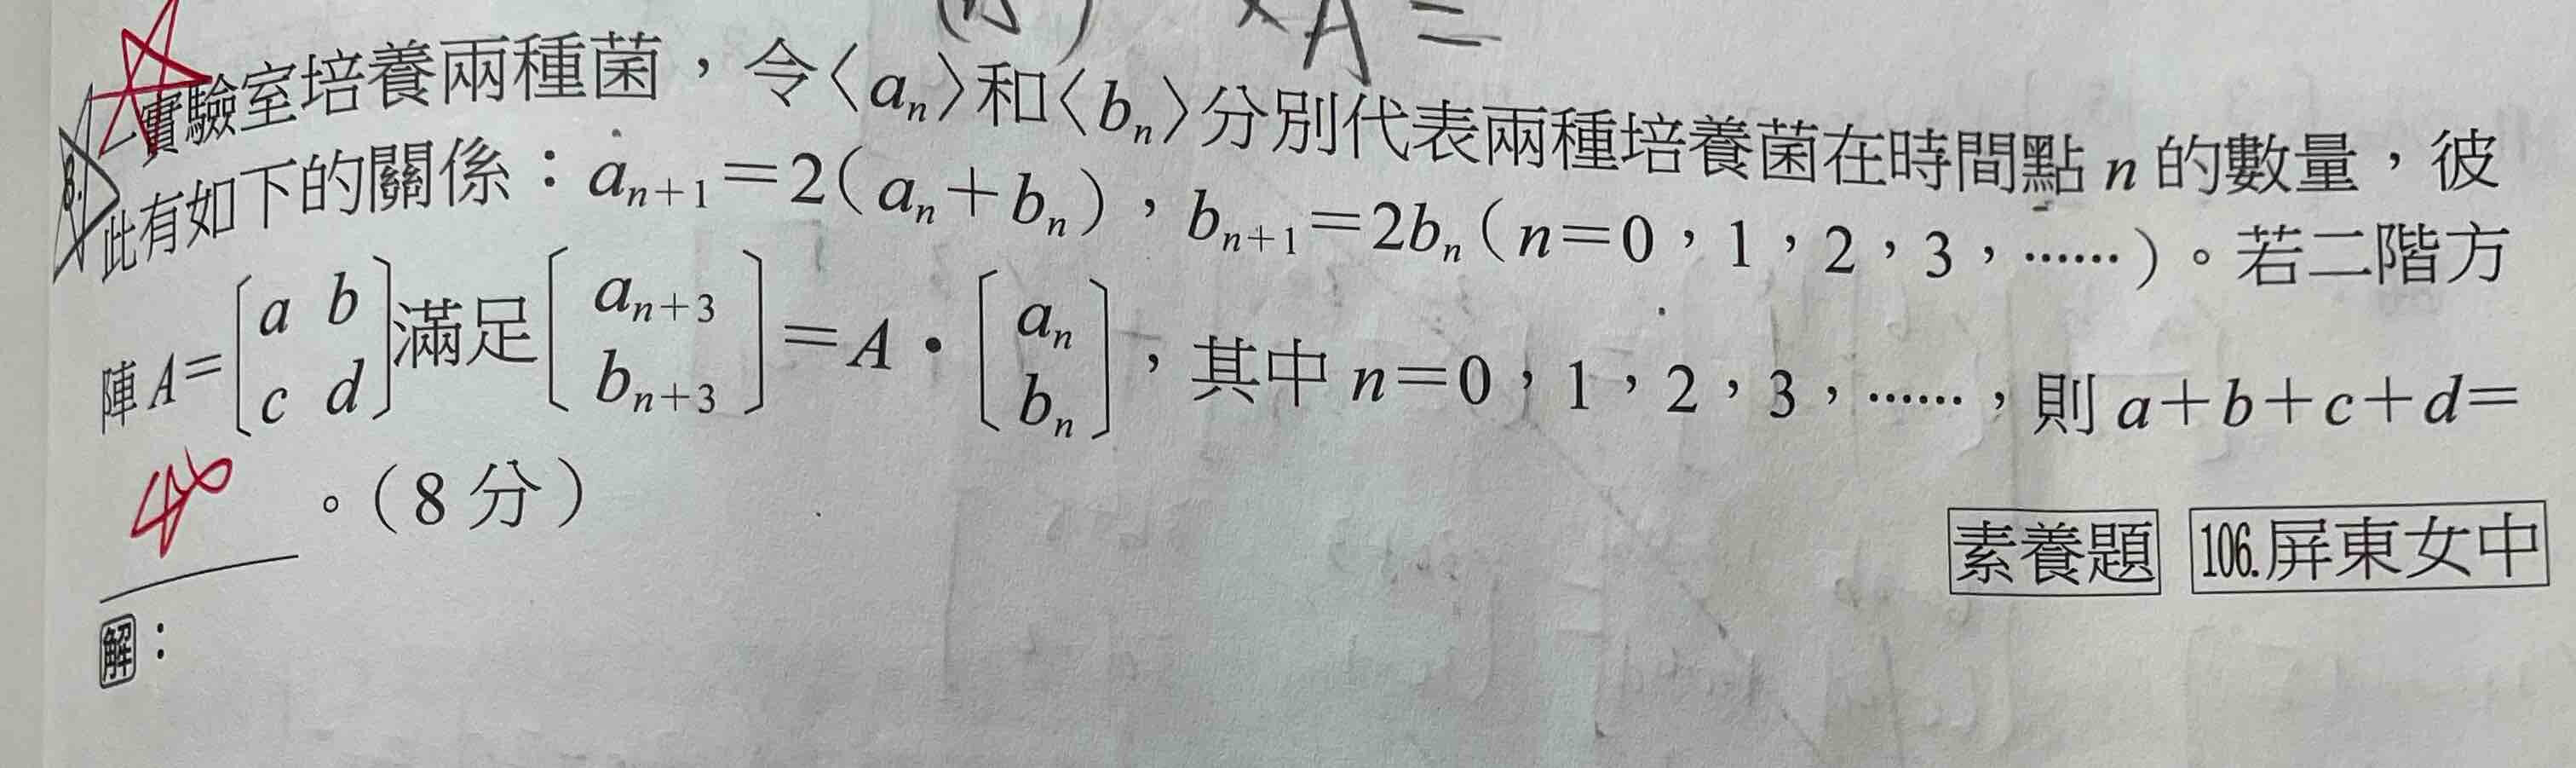 A =
一實驗室培養兩種菌，令〈a_n〉和〈b_n〉分別代表兩種培養菌在時間點 n 的數量，彼
8. 此有如下的關係：a_{n+1}=2(a_n+b_n)，b_{n+1}=2b_n(n=0，1，2，3，……)。若二階方
陣 A=[a b; c d]滿足[a_{n+3}; b_{n+3}]=A•[a_n; b_n]，其中 n=0，1，2，3，……，則 a+b+c+d=
40 。(8 分)
素養題 106.屏東女中
解：